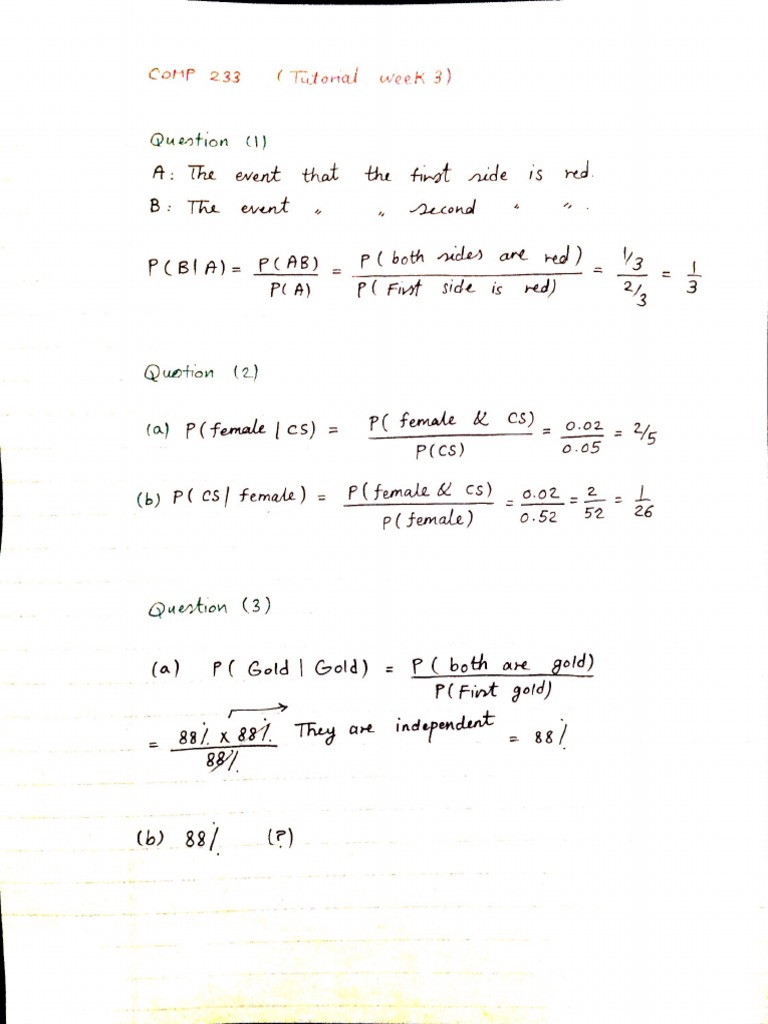 COMP 233 (Tutorial week 3)
Question (1)
A: The event that the first side is red.
B: The event " " second " ".
P(B|A) = P(AB) / P(A) = P(both sides are red) / P(First side is red) = 1/3 / 2/3 = 1/3
Question (2)
(a) P(female | CS) = P(female & CS) / P(CS) = 0.02 / 0.05 = 2/5
(b) P(CS | female) = P(female & CS) / P(female) = 0.02 / 0.52 = 2 / 52 = 1 / 26
Question (3)
(a) P(Gold | Gold) = P(both are gold) / P(First gold)
= 88% x 88% / 88% They are independent = 88%
(b) 88% (?)